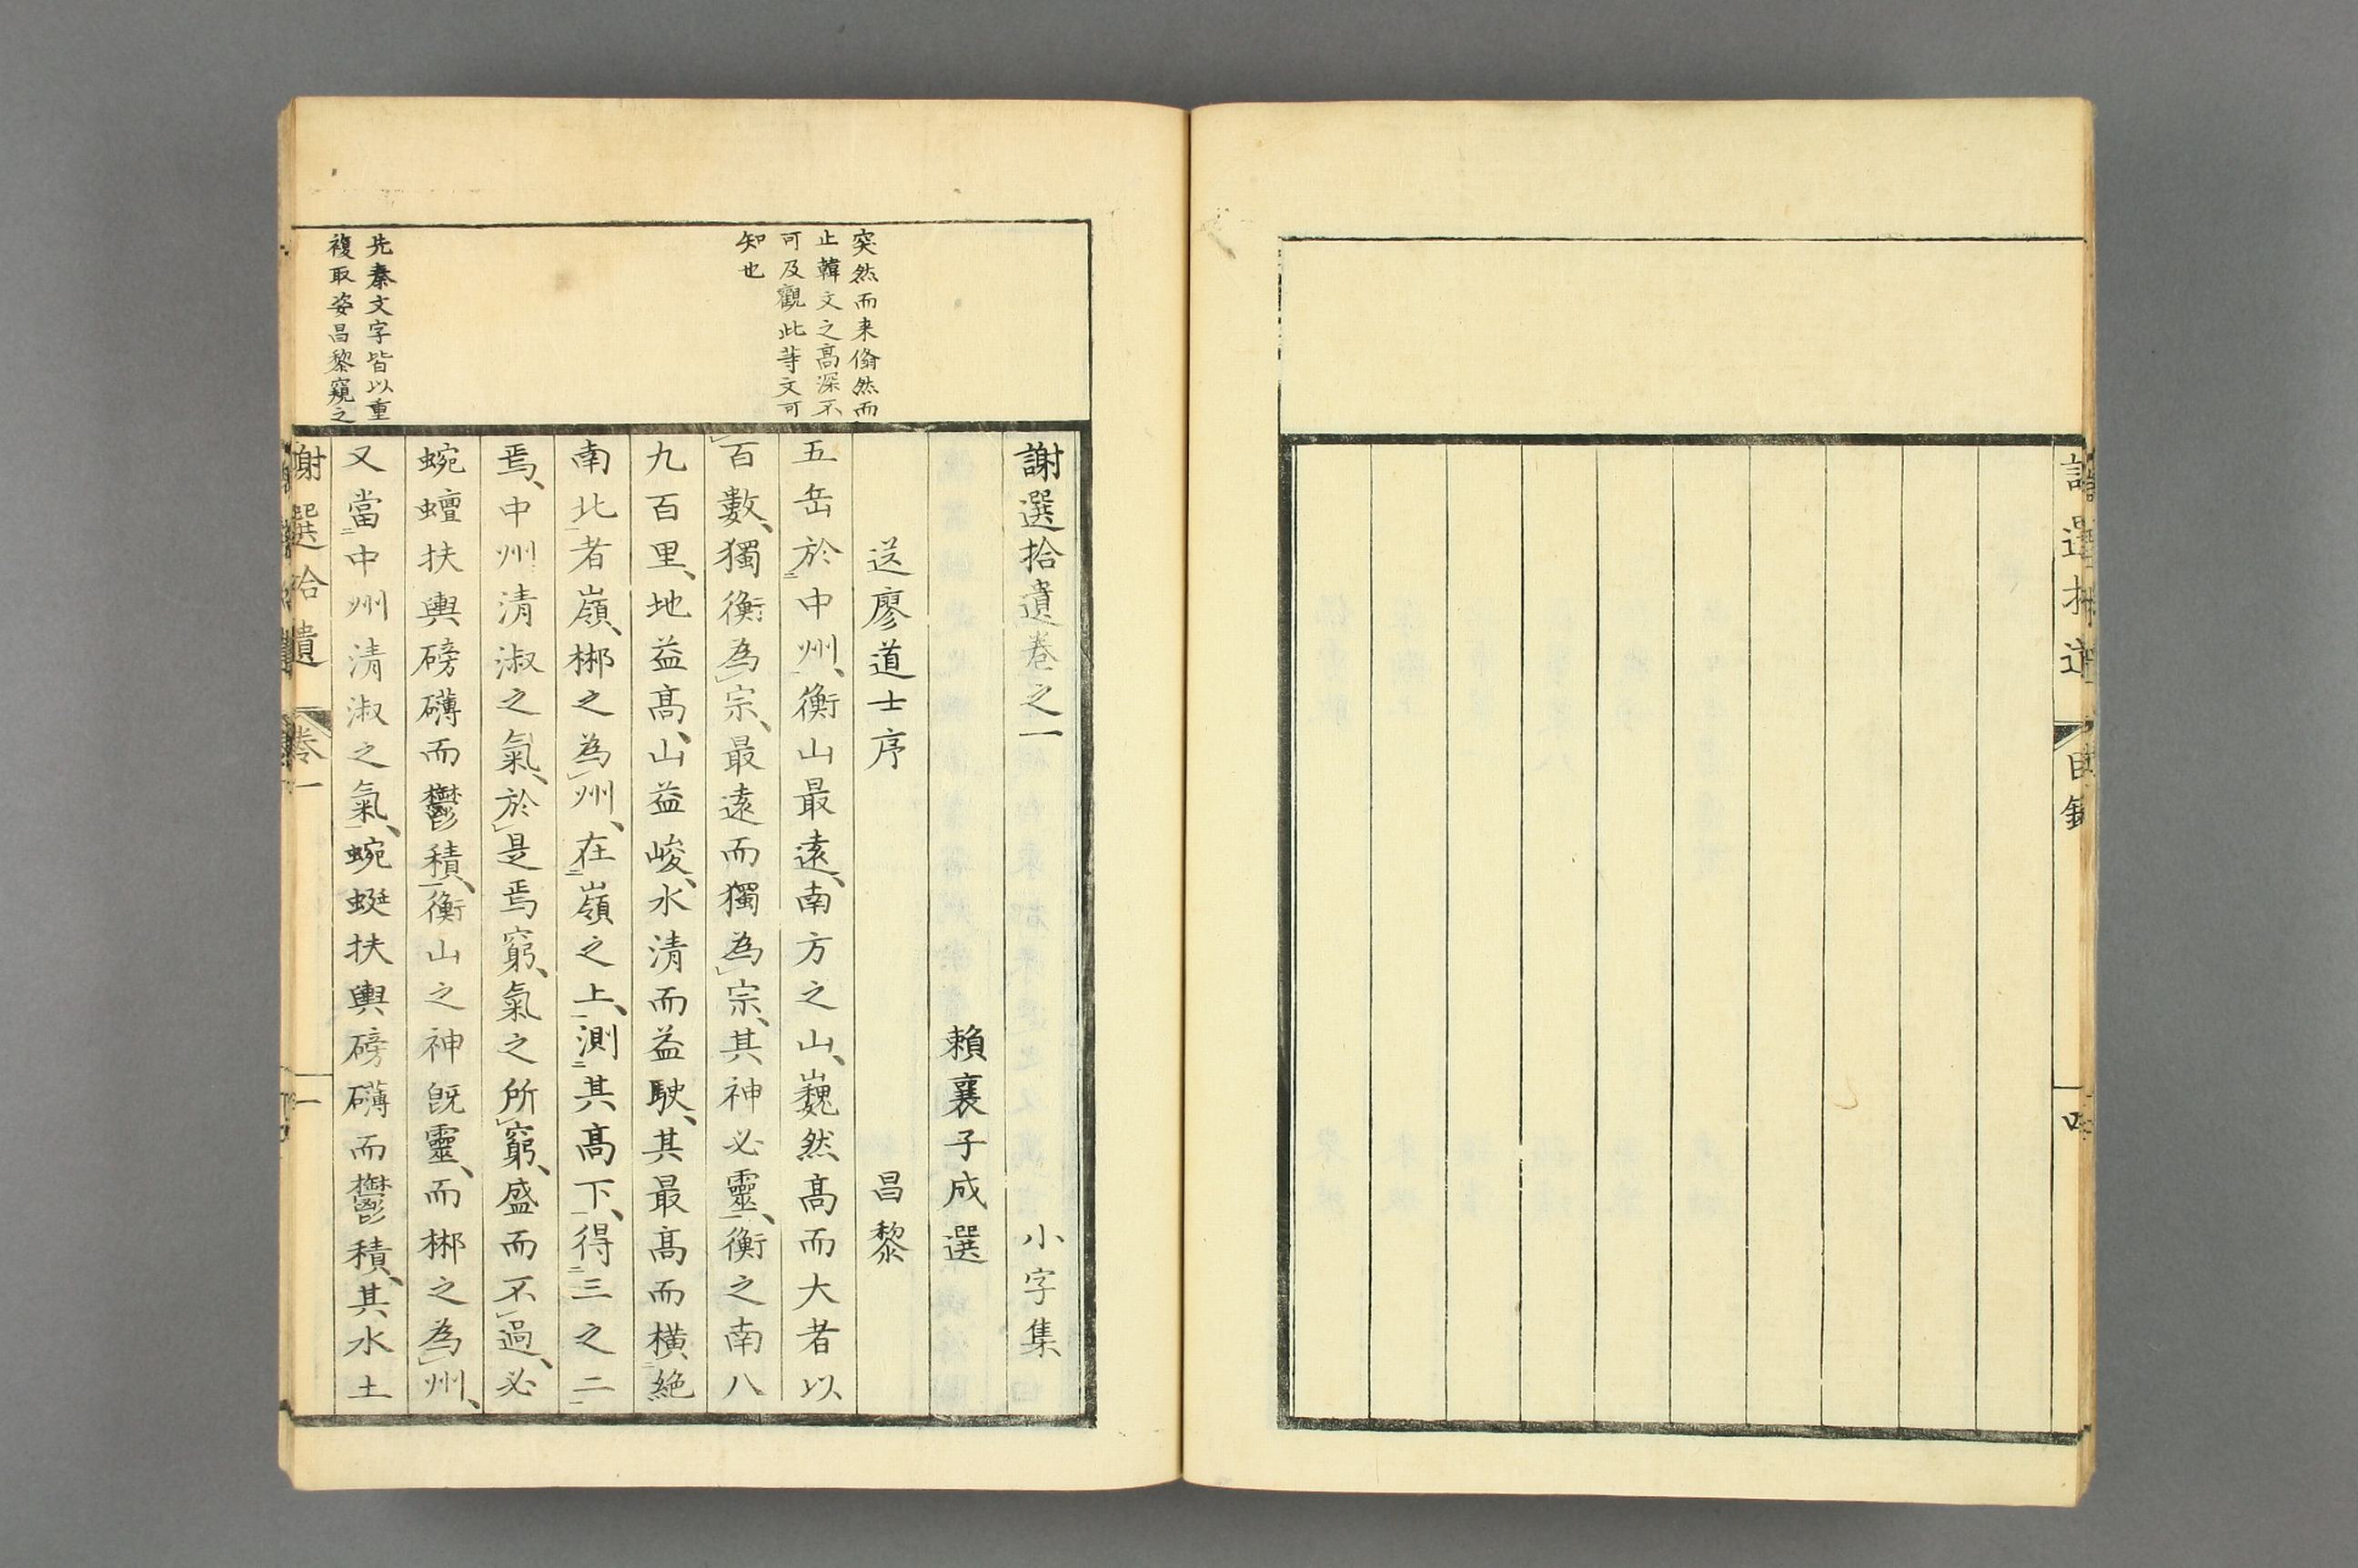 謝選拾遺卷之一　小字集
賴襄子成選
送廖道士序　昌黎
五岳於中州、衡山最遠、南方之山、巍然高而大者以
百數、獨衡為宗、最遠而獨為宗、其神必靈、衡之南八
九百里、地益高、山益峻、水清而益駛、其最高而橫絶
南北者嶺、郴之為州、在嶺之上、測其高下、得三之二
焉、中州清淑之氣、於是焉窮、氣之所窮、盛而不過、必
蜿蟺扶輿磅礴而鬱積、衡山之神既靈、而郴之為州、
又當中州清淑之氣、蜿蜓扶輿磅礴而鬱積、其水土
突然而来偹然而
止韓文之高深不
可及觀此等文可
知也
先秦文字皆以重
複取姿昌黎窺之
謝選拾遺　卷一　一